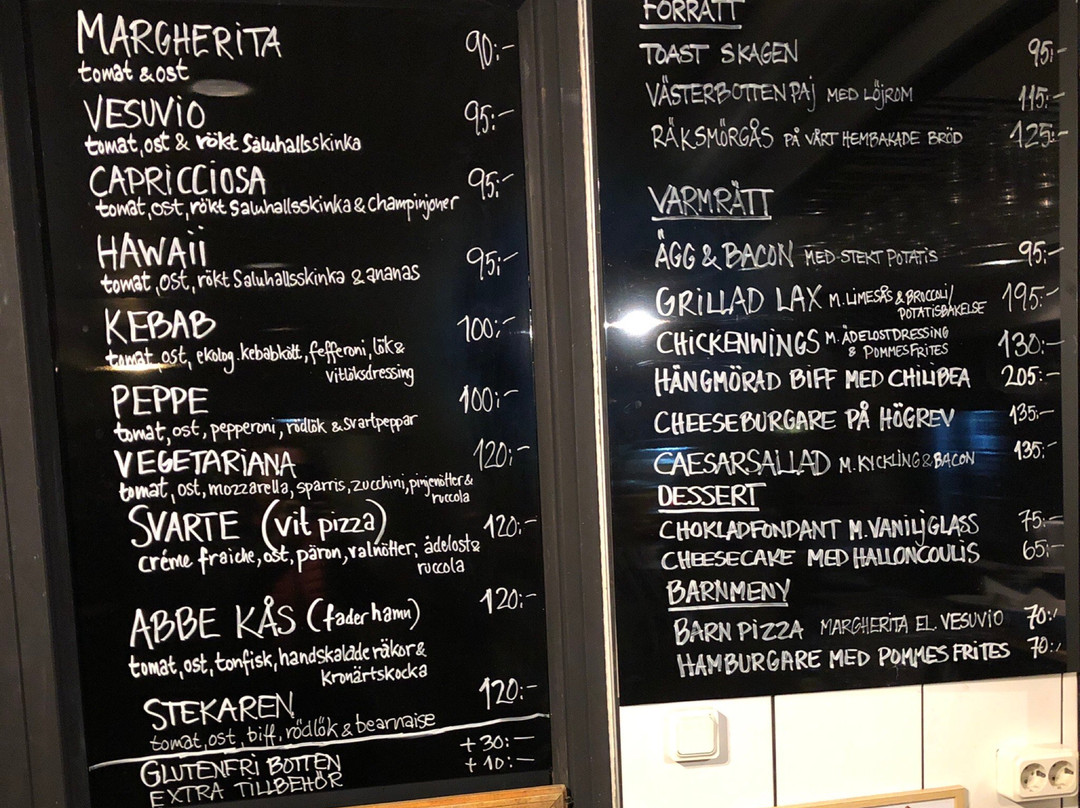 MARGHERITA 90:-
tomat & ost
VESUVIO 95:-
tomat, ost & rökt Saluhallsskinka
CAPRICCIOSA 95:-
tomat, ost, rökt Saluhallsskinka & champinjoner
HAWAII 95:-
tomat, ost, rökt Saluhallsskinka & ananas
KEBAB 100:-
tomat, ost, ekolog. kebabkött, fefferoni, lök &
vitlöksdressing
PEPPE 100:-
tomat, ost, pepperoni, rödlök & svartpeppar
VEGETARIANA 120:-
tomat, ost, mozzarella, sparris, zucchini, pinjenötter &
ruccola
SVARTE (vit pizza) 120:-
créme fraiche, ost, päron, valnötter, ädelost &
ruccola
ABBE KÅS (fader hamn) 120:-
tomat, ost, tonfisk, handskalade räkor &
Kronärtskocka
STEKAREN 120:-
tomat, ost, biff, rödlök & bearnaise
GLUTENFRI BOTTEN +30:-
EXTRA TILLBEHÖR +10:-
FÖRRÄTT
TOAST SKAGEN 95:-
VÄSTERBOTTENPAJ MED LÖJROM 115:-
RÄKSMÖRGÅS PÅ VÅRT HEMBAKADE BRÖD 125:-
VARMRÄTT
ÄGG & BACON MED STEKT POTATIS 95:-
GRILLAD LAX M. LIMESÅS & BROCCOLI/ 195:-
POTATISBAKELSE
CHICKENWINGS M. ÄDELOSTDRESSING 130:-
& POMMES FRITES
HÄNGMÖRAD BIFF MED CHILIBEA 205:-
CHEESEBURGARE PÅ HÖGREV 135:-
CAESARSALLAD M. KYCKLING & BACON 135:-
DESSERT
CHOKLADFONDANT M. VANILJGLASS 75:-
CHEESECAKE MED HALLONCOULIS 65:-
BARNMENY
BARN PIZZA MARGHERITA EL. VESUVIO 70:-
HAMBURGARE MED POMMES FRITES 70:-